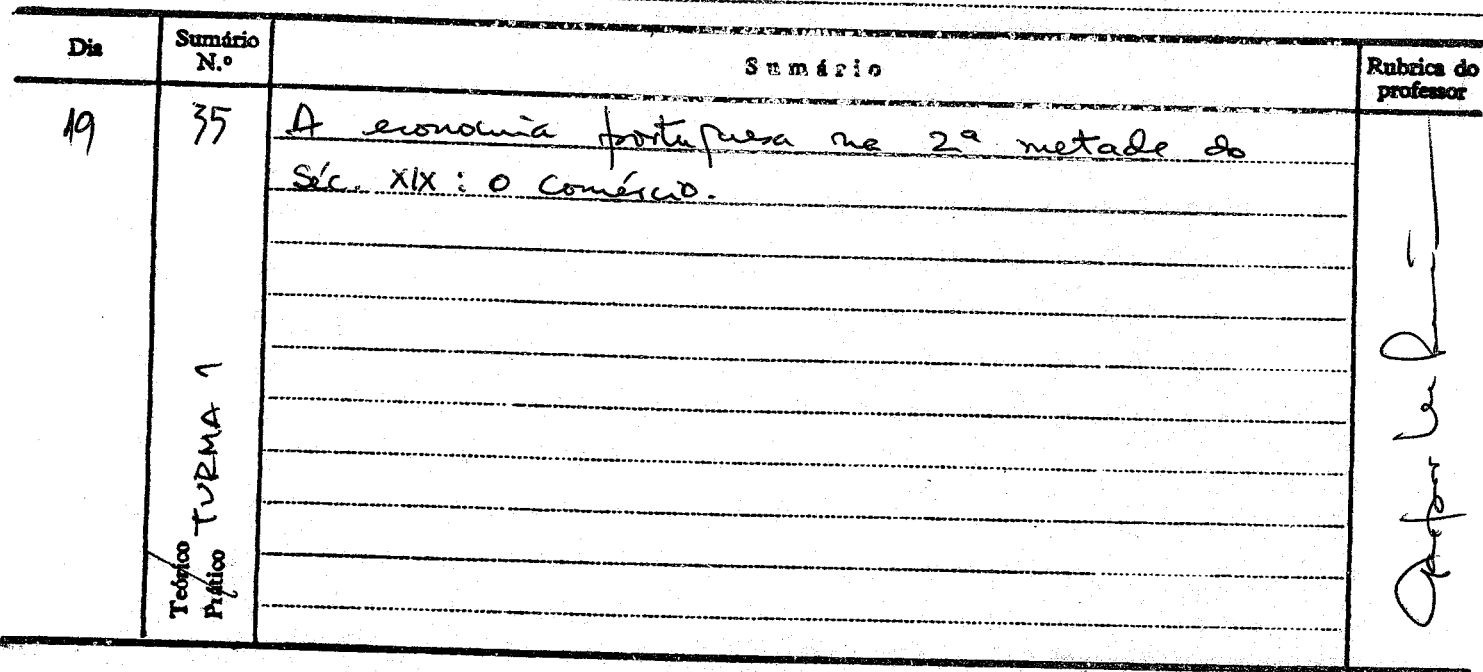 Dia
Sumário N.º
Sumário
Rubrica do professor
19
35
A economia portuguesa na 2ª metade do
Séc. XIX: o comércio.
Teórico
Prático
TURMA 1